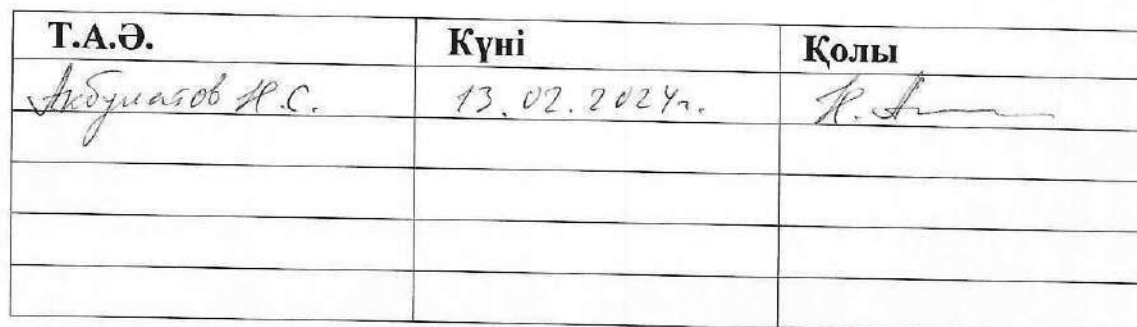 Т.А.Ә. Күні Қолы
Акбулатов Н.С. 13.02.2024г. Н. А